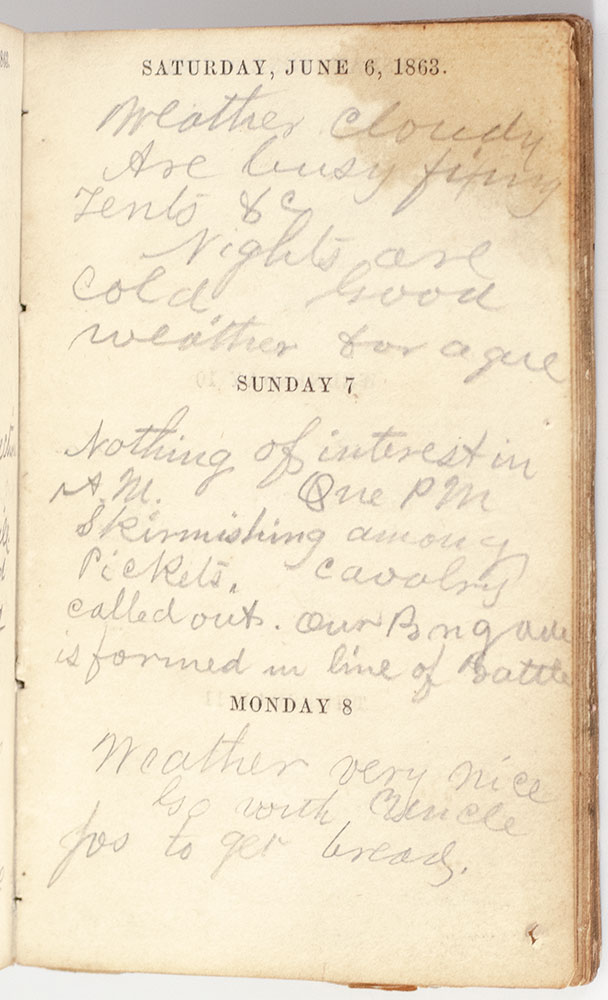 SATURDAY, JUNE 6, 1863.
Weather cloudy
Are busy fixing
Tents &c
Nights are
cold Good
weather for ague
SUNDAY 7
Nothing of interest in
A.M. One PM
Skirmishing among
Pickets. Cavalry
called out. Our Brigade
is formed in line of Battle
MONDAY 8
Weather very nice
Go with Uncle
Jos to get bread.